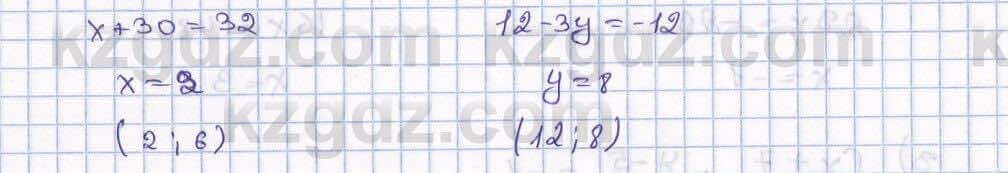 x+30=32
x=2
(2; 6)
12-3y=-12
y=8
(12; 8)
kzgdz.com
kzgdz.com